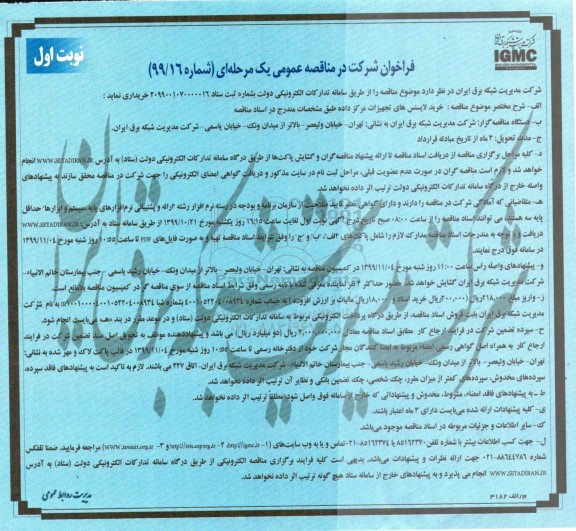 نوبت اول
شرکت مدیریت شبکه برق ایران
IGMC
فراخوان شرکت در مناقصه عمومی یک مرحله‌ای (شماره ۹۹/۱۶)
شرکت مدیریت شبکه برق ایران در نظر دارد موضوع مناقصه را از طریق سامانه تدارکات الکترونیکی دولت بشماره ثبت ستاد ۲۰۹۹۰۰۱۰۷۰۰۰۰۰۱۶ خریداری نماید :
الف - شرح مختصر موضوع مناقصه : خرید لایسنس های تجهیزات مرکز داده طبق مشخصات مندرج در اسناد مناقصه
ب- دستگاه مناقصه گزار: شرکت مدیریت شبکه برق ایران به نشانی: تهران- خیابان ولیعصر- بالاتر از میدان ونک- خیابان یاسمی- شرکت مدیریت شبکه برق ایران.
ج- مدت تحویل: ۳ ماه از تاریخ مبادله قرارداد
د- کلیه مراحل برگزاری مناقصه از دریافت اسناد مناقصه تا ارائه پیشنهاد مناقصه گران و گشایش پاکت‌ها از طریق درگاه سامانه تدارکات الکترونیکی دولت (ستاد) به آدرس WWW.SETADIRAN.IR انجام
خواهد شد و لازم است مناقصه گران در صورت عدم عضویت قبلی، مراحل ثبت نام در سایت مذکور و دریافت گواهی امضای الکترونیکی را جهت شرکت در مناقصه محقق سازند به پیشنهادهای
واصله خارج از درگاه سامانه تدارکات الکترونیکی دولت ترتیب اثر داده نخواهد شد.
هـ- متقاضیانی که آمادگی شرکت در مناقصه را دارند و دارای گواهی معتبر تایید صلاحیت از سازمان برنامه و بودجه در رسته نرم افزار رشته "ارائه و پشتیبانی نرم‌افزارهای پایه سیستم و ابزارها" حداقل
پایه سه هستند، می توانند اسناد مناقصه را از ساعت ۰۸:۰۰ صبح تاریخ درج آگهی نوبت اول لغایت ساعت ۱۹:۱۵ روز یکشنبه مورخ ۱۳۹۹/۱۰/۲۱ از طریق درگاه سامانه ستاد به آدرس WWW.SETADIRAN.IR
دریافت و با توجه به مندرجات اسناد مناقصه مدارک لازم را شامل پاکت‌های "الف"، "ب" و "ج" را وفق شرایط اسناد مناقصه تهیه و به صورت فایل‌های PDF تا ساعت ۱۰:۵۵ روز شنبه مورخ ۱۳۹۹/۱۱/۰۴
در سامانه فوق درج نمایند.
و- پیشنهادهای واصله راس ساعت ۱۱:۰۰ روز شنبه مورخ ۱۳۹۹/۱۱/۰۴ در کمیسیون مناقصه به نشانی: تهران- خیابان ولیعصر- بالاتر از میدان ونک- خیابان رشید یاسمی- جنب بیمارستان خاتم الانبیاء-
شرکت مدیریت شبکه برق ایران گشایش خواهد شد. حضور حداکثر نماینده معرفی شده با نامه رسمی وفق شرایط اسناد مناقصه از سوی مناقصه گر در کمیسیون مناقصه بلامانع است.
ز- واریز مبلغ ریال خرید اسناد و ریال مالیات بر ارزش افزوده به حساب شماره به نام شرکت
مدیریت شبکه برق ایران بابت فروش اسناد مناقصه، از طریق درگاه پرداخت الکترونیکی مربوط به سامانه تدارکات الکترونیکی دولت (ستاد) و در موعد مقرر در بند «هـ» می‌بایست انجام شود.
ح- سپرده تضمین شرکت در فرایند ارجاع کار مطابق اسناد مناقصه معادل ۲.۰۰۰.۰۰۰.۰۰۰ ریال (دو میلیارد ریال) می باشد و پیشنهاددهنده موظف به تحویل اصل سند تضمین شرکت در فرایند
ارجاع کار به همراه اصل گواهی رسمی امضاء مربوط به امضا کنندگان مجاز شرکت خود از دفترخانه رسمی تا ساعت ۱۰:۵۵ روز شنبه مورخ ۱۳۹۹/۱۱/۰۴ در قالب پاکت لاک و مهر شده به نشانی:
تهران- خیابان ولیعصر- بالاتر از میدان ونک- خیابان رشید یاسمی- جنب بیمارستان خاتم الانبیاء- شرکت مدیریت شبکه برق ایران- اتاق ۲۲۷ می باشند. لازم به تاکید است به پیشنهادهای فاقد سپرده،
سپرده‌های مخدوش، سپرده‌های کمتر از میزان مقرر، چک شخصی، چک تضمین بانکی و نظایر آن ترتیب اثر داده نخواهد شد.
ط- به پیشنهادهای فاقد امضاء، مشروط، مخدوش و پیشنهاداتی که خارج از سامانه فوق واصل شود مطلقا ترتیب اثر داده نخواهد شد.
ی- کلیه پیشنهادات ارائه شده می‌بایست دارای ۳ ماه اعتبار باشند.
ک- سایر اطلاعات و جزئیات مربوطه در اسناد مناقصه موجود می‌باشد.
ل- جهت کسب اطلاعات بیشتر با شماره تلفن ۸۵۱۶۲۳۷۰ یا ۰۲۱-۸۵۱۶۲۳۷۴ تماس و یا به وب سایت‌های (۱- http://igmc.ir ۲- http://iets.mporg.ir و ۳- www.tavanir.org.ir) مراجعه فرمایید. ضمنا تلفکس
شماره ۰۲۱-۸۸۶۴۴۷۸۶ جهت ارائه نظرات و پیشنهادات می‌باشد. بدیهی است کلیه فرایند برگزاری مناقصه الکترونیکی از طریق درگاه سامانه تدارکات الکترونیکی دولت (ستاد) به آدرس
WWW.SETADIRAN.IR انجام می پذیرد و به پیشنهادهای خارج از سامانه ستاد هیچ گونه ترتیب اثر داده نخواهد شد.
مدیریت روابط عمومی
م/الف ۳۱۸۲